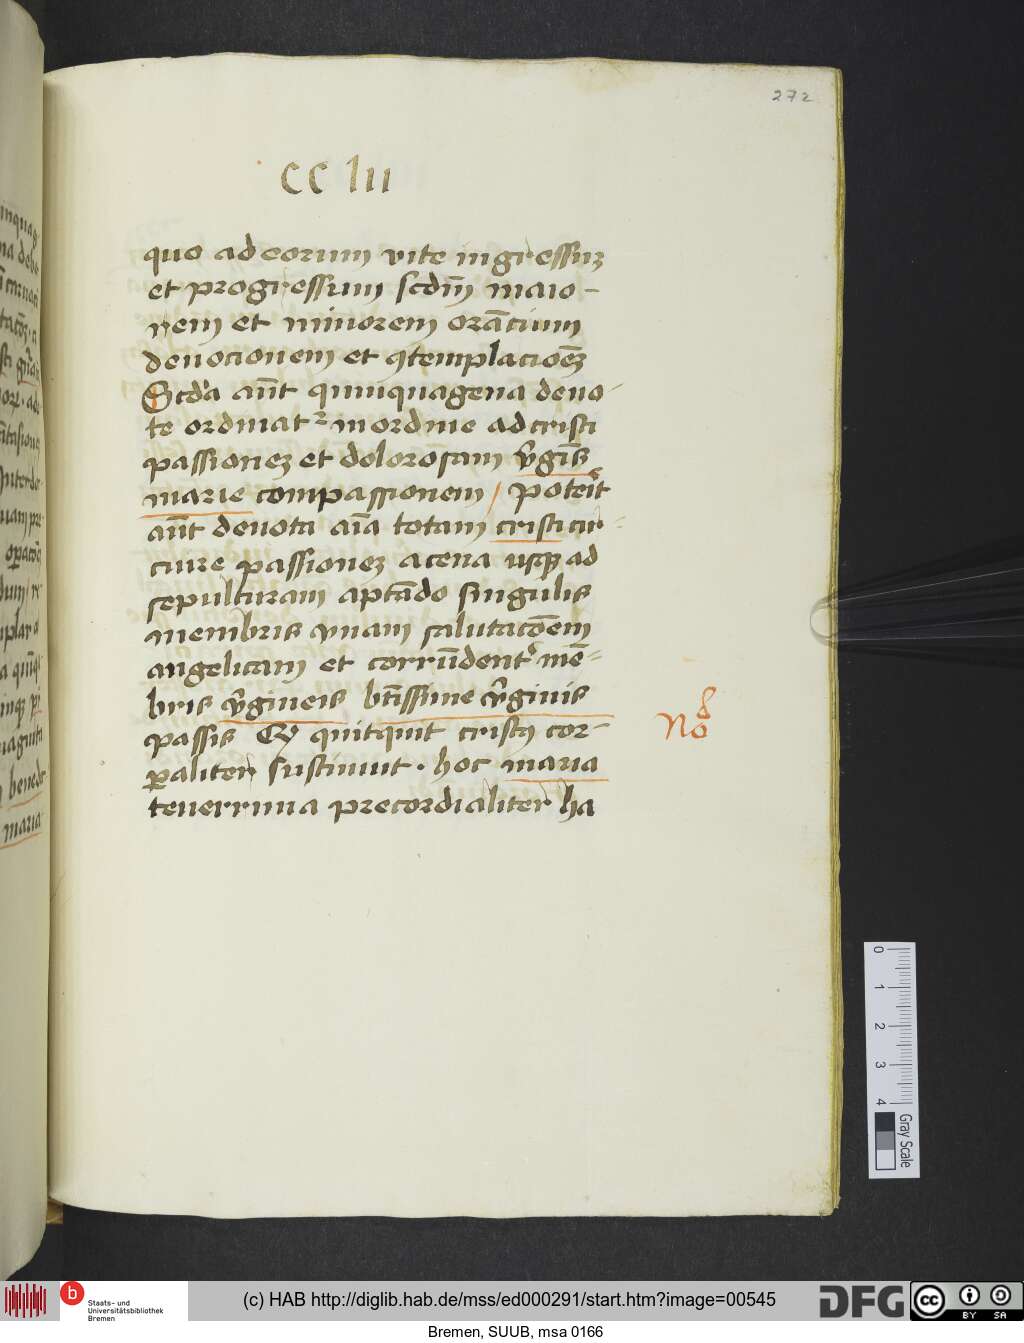 272
CC lii
quo ad eorum vite ingressuʒ
et progressum scdm̄ maio-
rem et minorem orāciūm
deuocionem et ꝯtemplacioēʒ
Scda aūt quinquagena deuo-
te ordinatʳ in ordine ad cristi
passioneʒ et dolorosam v̄gīs
marie compassionem / poterit
aūt deuota aīa totam cristi cir-
ciure passioneʒ a cena usqʒ ad
sepulturam aptādo singulis
membris vnam salutacōem
angelicam et corrn̄dentʳ mē-
bris v̄gineis bt̄issime v̄ginis
passis Et quitquit cristꝰ cor-
ꝑaliter sustinuit · hoc maria
tenerrima precordialiter ha
Nọ
0
1
2
3
4
Gray Scale
b Staats- und
Universitätsbibliothek
Bremen
(c) HAB http://diglib.hab.de/mss/ed000291/start.htm?image=00545
DFG
cc BY SA
Bremen, SUUB, msa 0166